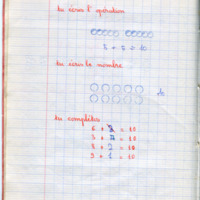 tu écris l'opération
5 + 5 = 10
tu écris le nombre
10
tu complètes
6 + 4 = 10
3 + 7 = 10
8 + 2 = 10
9 + 1 = 10